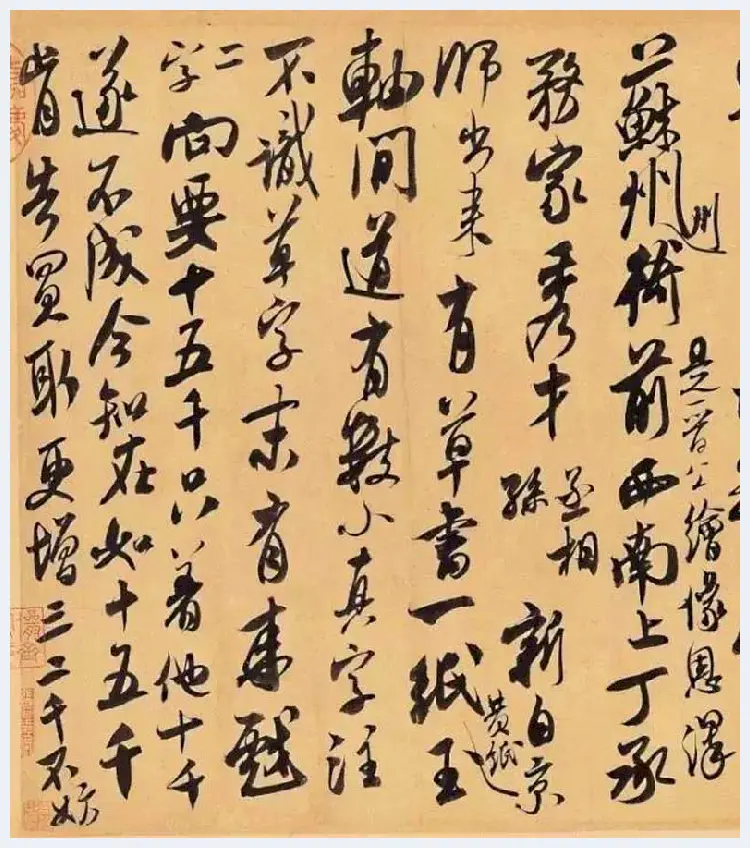 蘇州衙前西南上丁承
州 是晉公繪像恩澤
務家秀才 丞相孫 新自京
師出來有草書一紙 黃紙 王
軸間道有數小真字注
不識草字末有來戲
二字向要十五千只著他十千
遂不成今知在如十五千
肯告買取更增三二千不妨